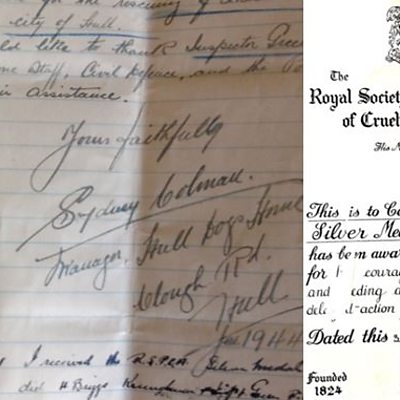 for the rescuing of
city of Hull.
ld like to thank Inspector Green
Staff, Civil Defence, and the
assistance.
Yours faithfully
Sydney Colman.
Manager. Hull Dogs Home
Clough Rd.
Hull
1944
I received the R.S.P.C.A. Silver Medal
did H Briggs Kennelman
The
Royal Society
of Cruel
This is to Ce
Silver Me
has been awar
for courag
and eding a
del ction
Dated this
Founded
1824